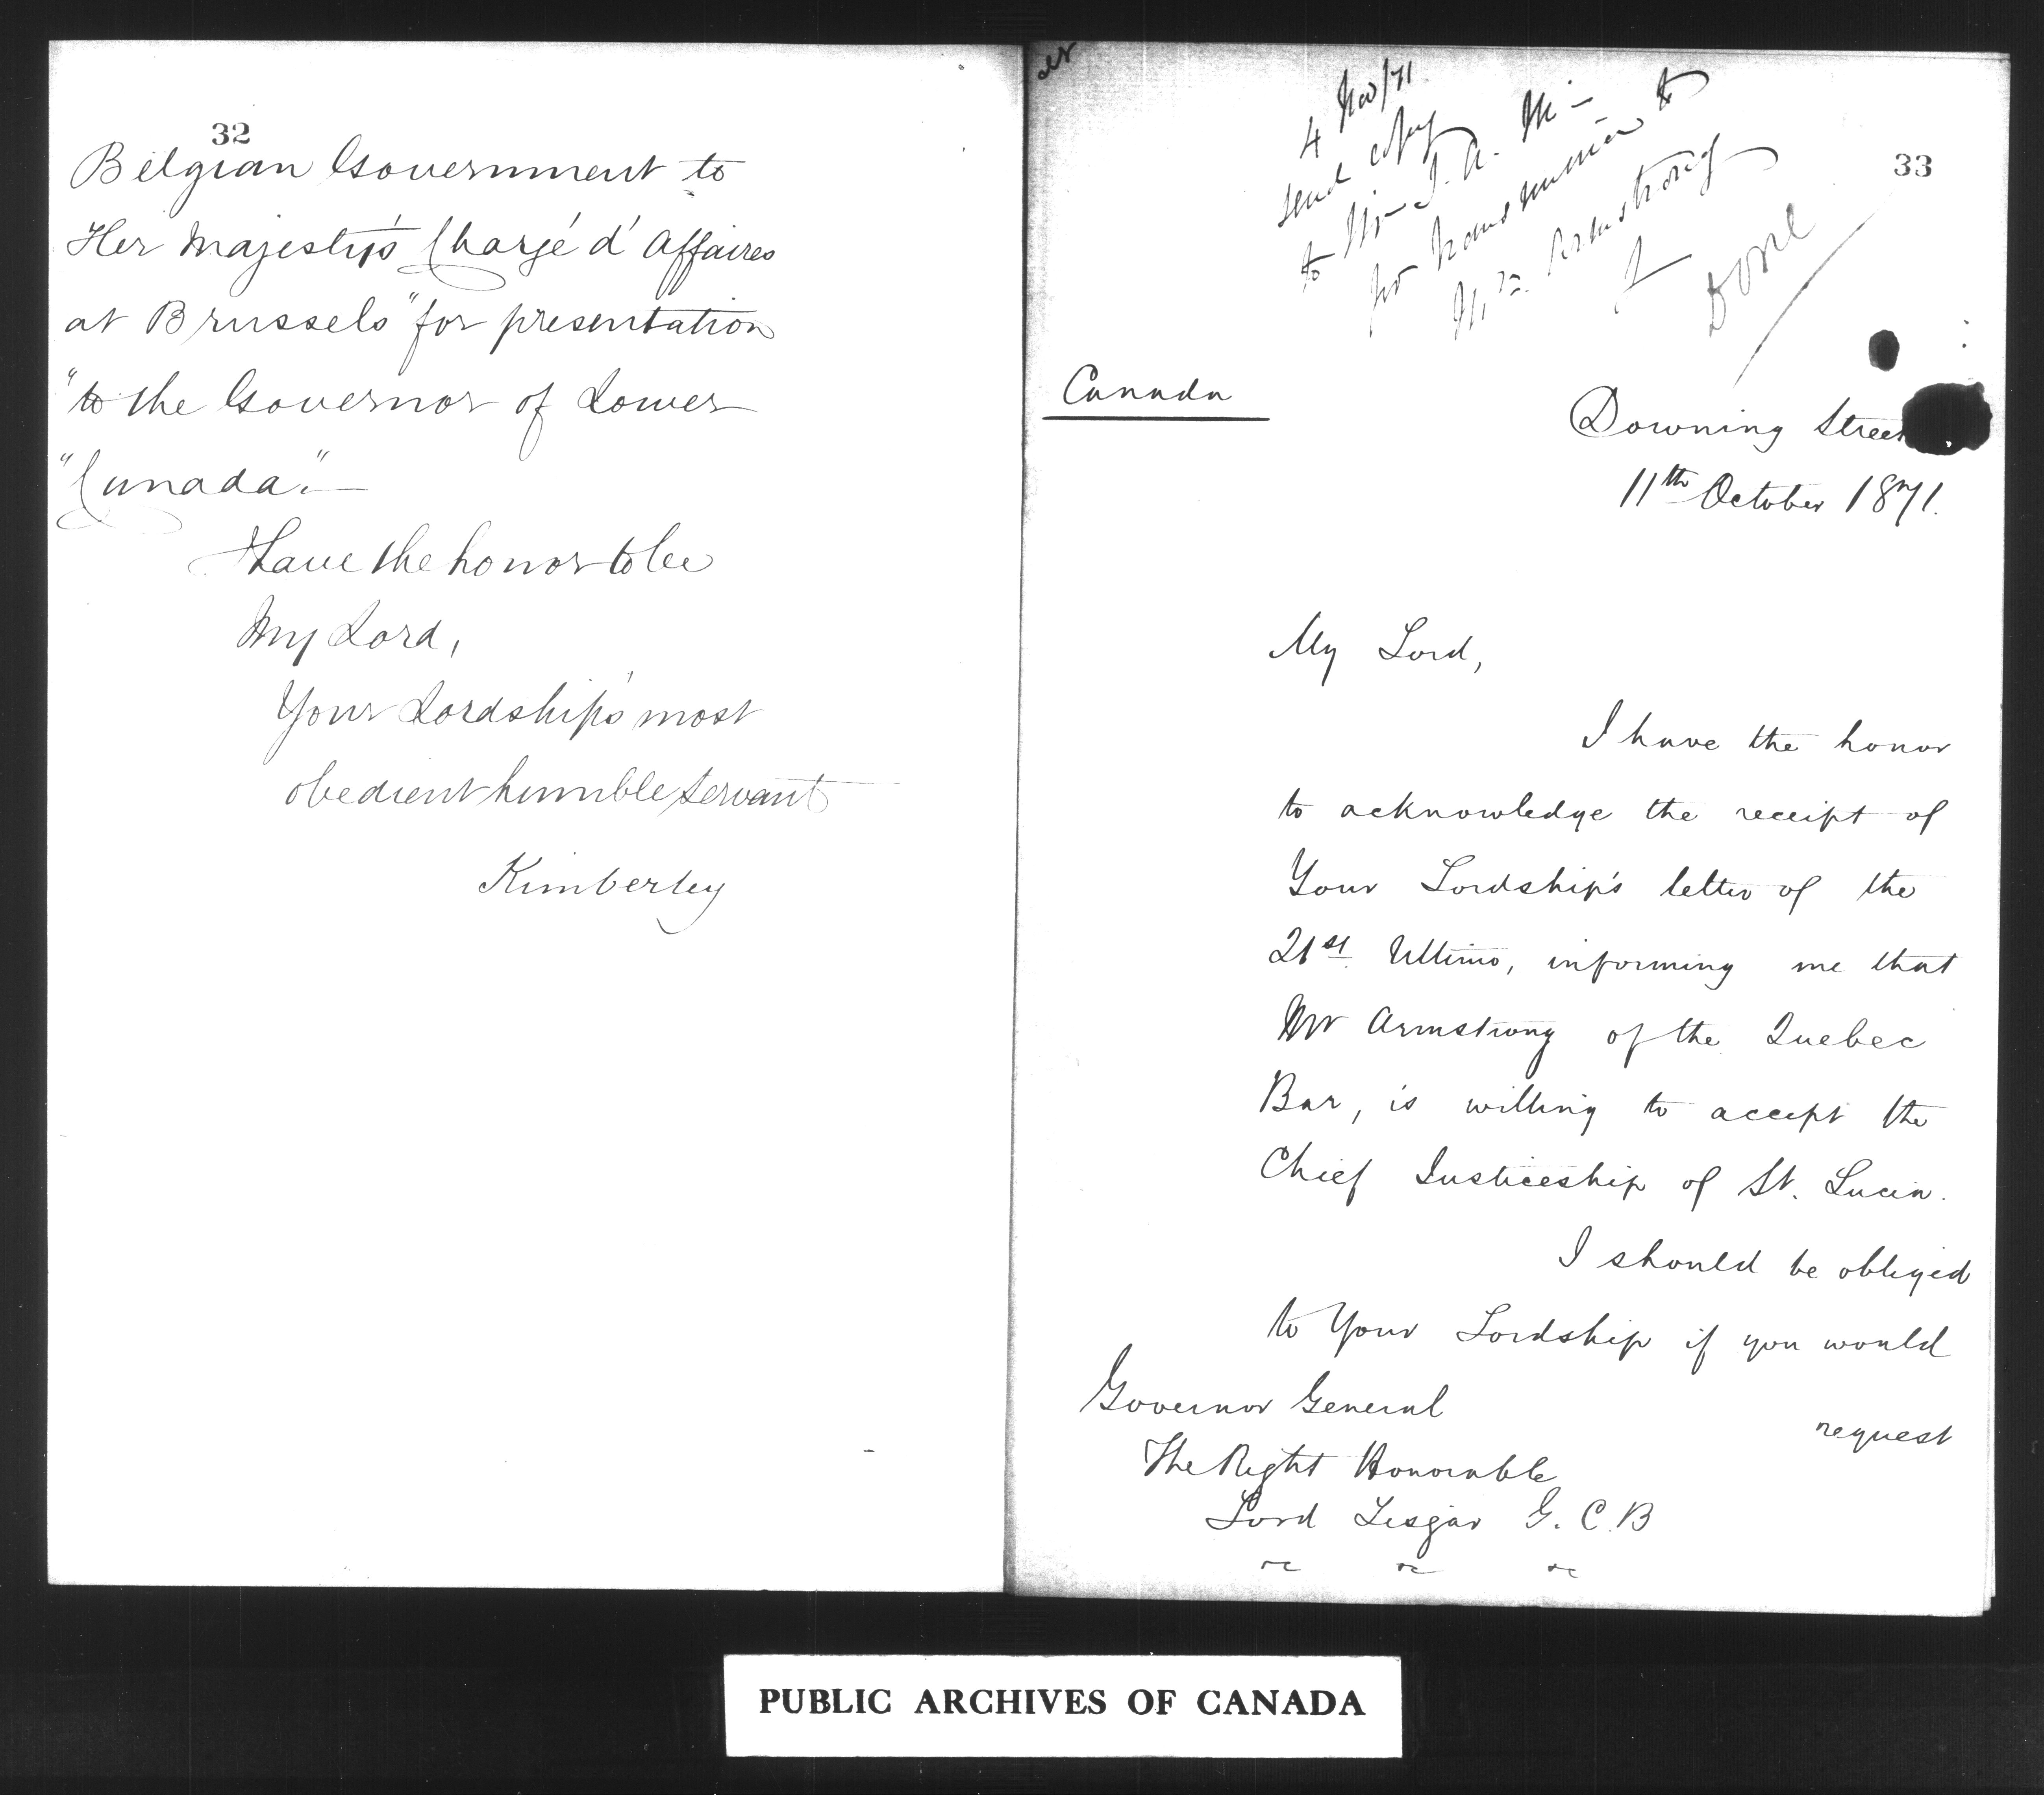 32
Belgian Government to
Her Majesty's Chargé d'Affaires
at Brussels "for presentation
"to the Governor of Lower
"Canada."
Have the honor to be
My Lord,
Your Lordship's most
obedient humble servant
Kimberley
4 Nov/71
send copy
to J. A. M
for transmission to
Mr. Armstrong
L
Done
33
Canada
Downing Street
11th October 1871.
My Lord,
I have the honor
to acknowledge the receipt of
Your Lordship's letter of the
21st Ultimo, informing me that
Mr Armstrong of the Quebec
Bar, is willing to accept the
Chief Justiceship of St. Lucia.
I should be obliged
to Your Lordship if you would
request
Governor General
The Right Honorable
Lord Lisgar G.C.B
&c &c &c
PUBLIC ARCHIVES OF CANADA